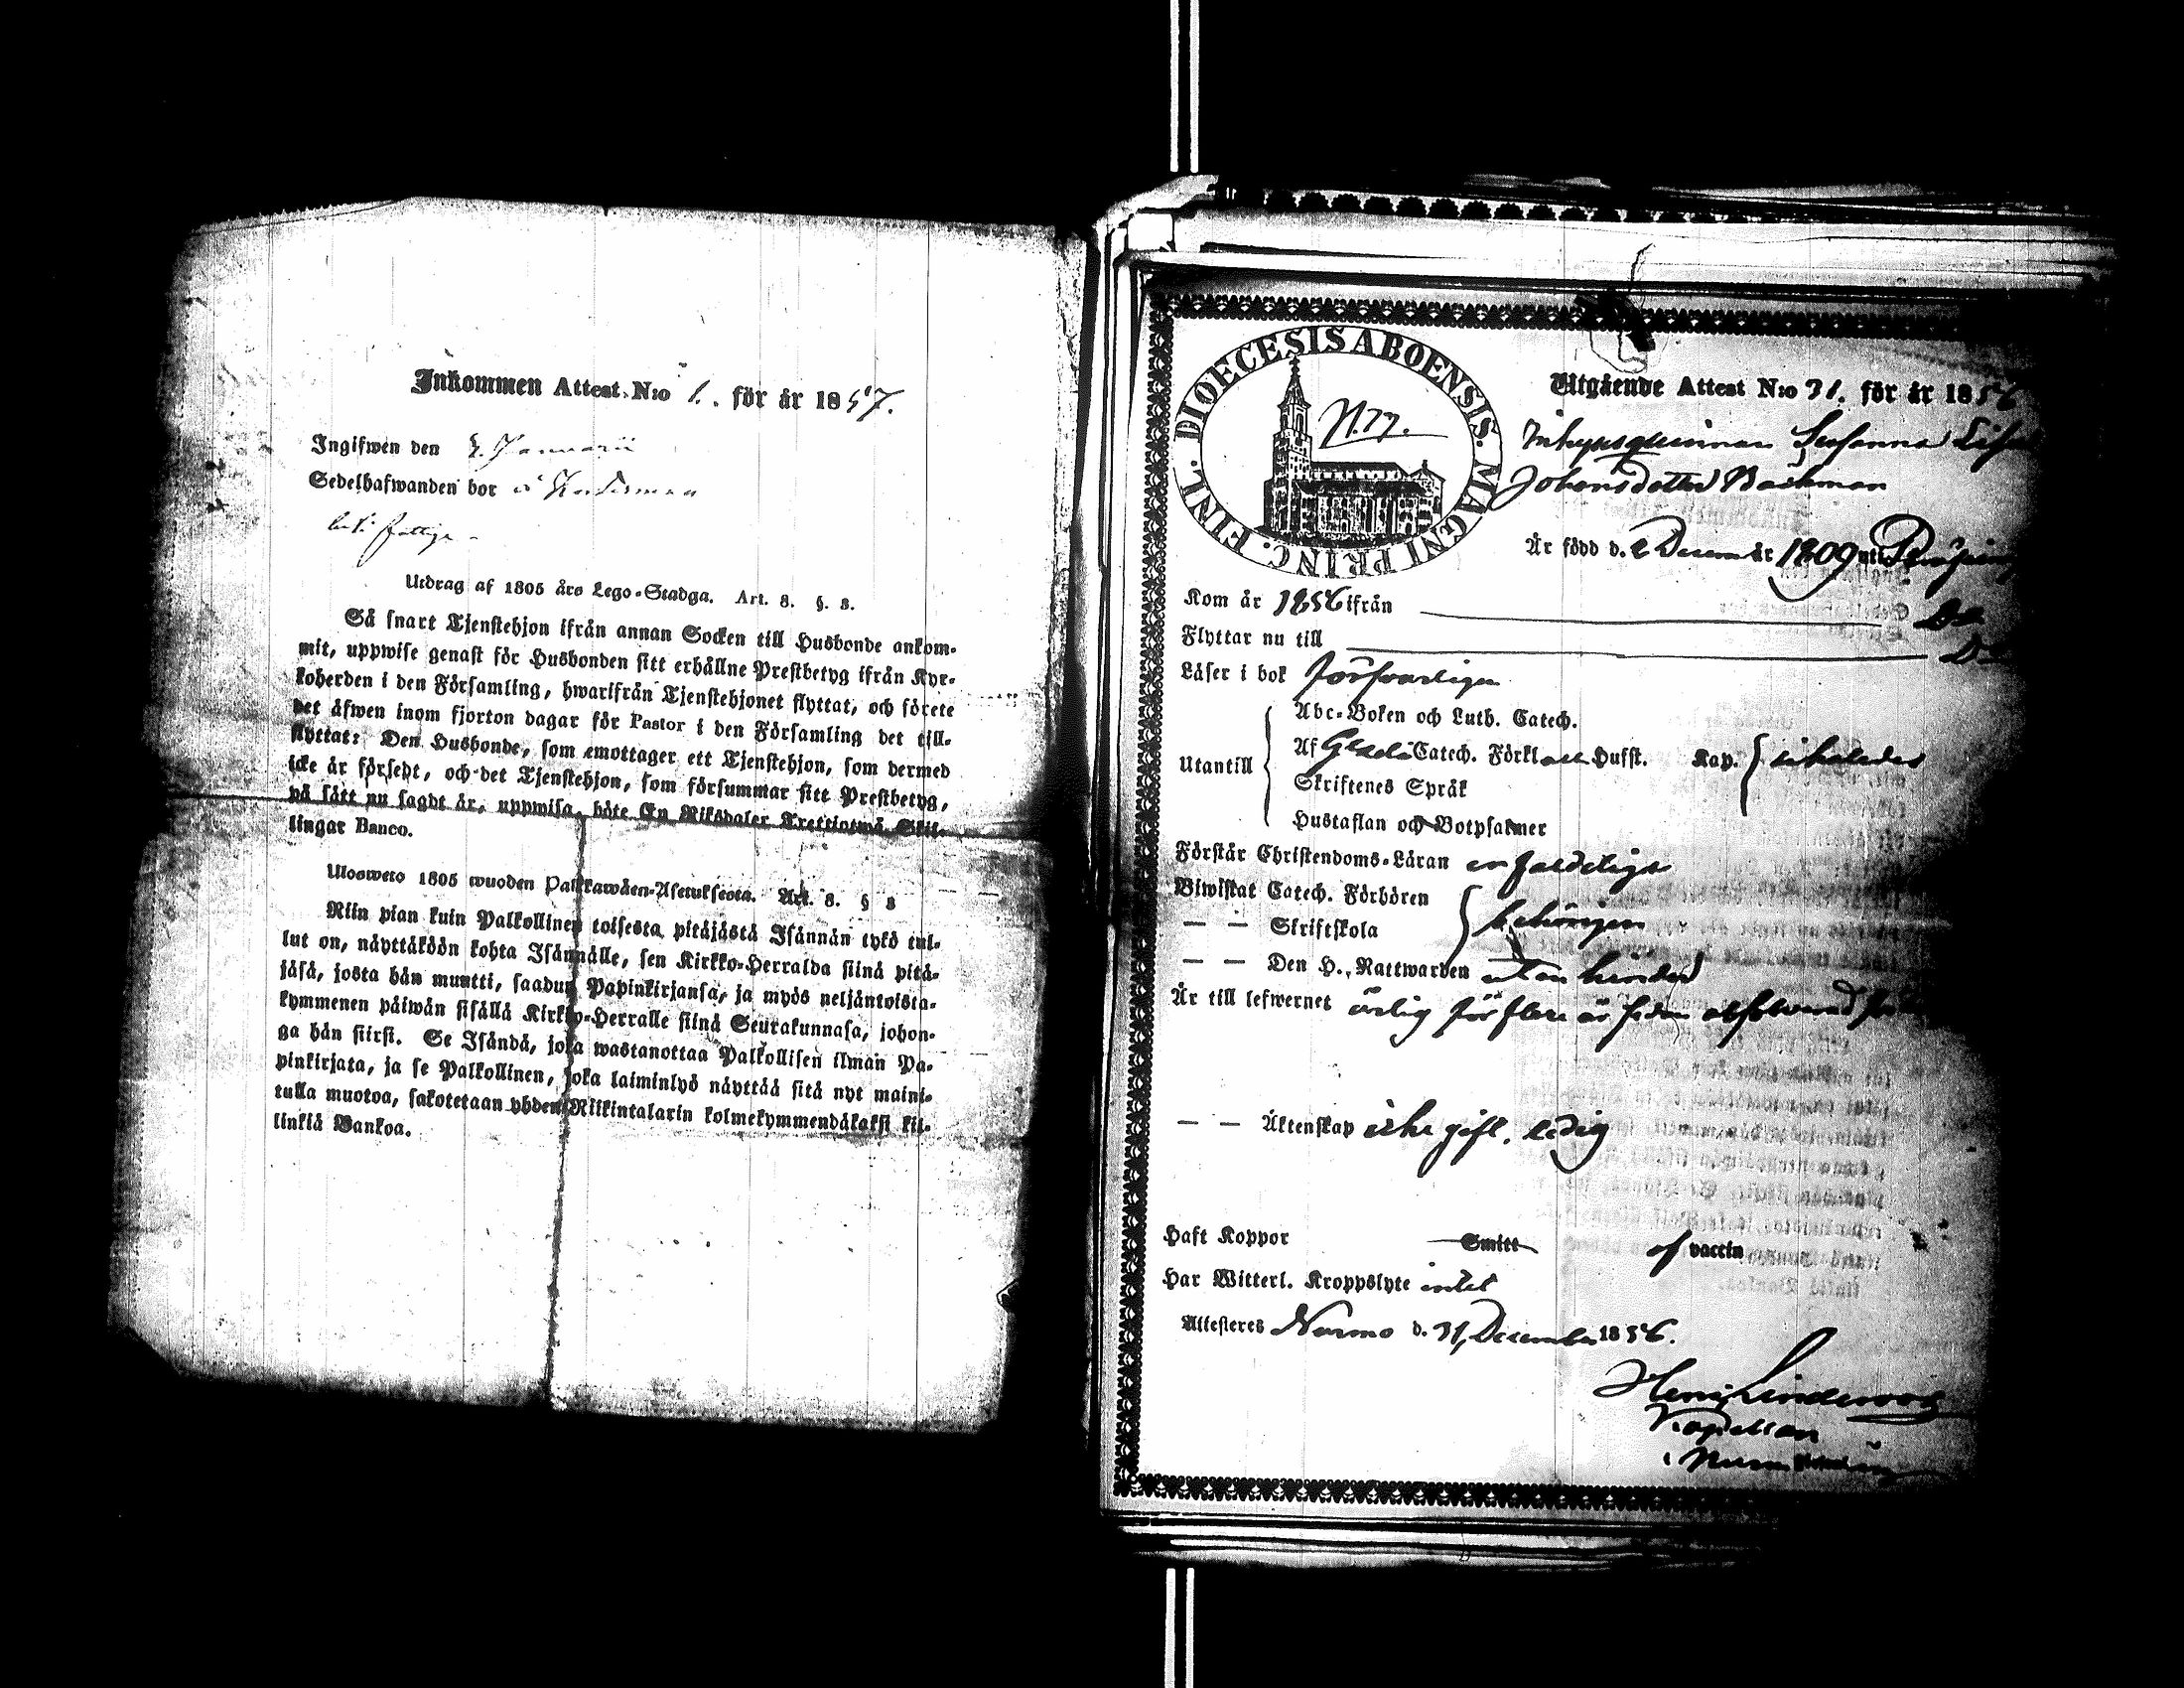 Inkommen Attest N:o 1. för år 1857.
Ingifwen den 4. Januarii
Sedelhafwanden bor å
Utdrag af 1805 års Lego-Stadga. Art. 8. §. 8.
Så snart Tjenstehjon ifrån annan Socken till Husbonde ankom-
mit, uppwise genast för Husbonden sitt erhållne Prestbetyg ifrån Kyr-
koherden i den Församling, hwarifrån Tjenstehjonet flyttat, och förete
det äfwen inom fjorton dagar för Pastor i den Församling det till-
flyttat: Den Husbonde, som emottager ett Tjenstehjon, som dermed
icke är försedt, och det Tjenstehjon, som försummar sitt Prestbetyg,
på sätt nu sagdt är, uppwisa, böte En Riksdaler Trettiotwå Skil-
lingar Banco.
Ulosweto 1805 wuoden Palkkawäen-Asetuksesta. Art. 8. § 8
Niin pian kuin Palkollinen toisesta pitäjästä Isännän tykö tul-
lut on, näyttäköön kohta Isännälle, sen Kirkko-Herralda siinä pitä-
jäsä, josta hän muutti, saadun Papinkirjansa, ja myös neljäntoista-
kymmenen päiwän sisällä Kirkko-Herralle siinä Seurakunnasa, johon-
ga hän siirsi. Se Isändä, joka wastanottaa Palkollisen ilman Pa-
pinkirjata, ja se Palkollinen, joka laiminlyö näyttää sitä nyt maini-
tulla muotoa, sakotetaan yhden Riikintalarin kolmekymmendäkaksi kil-
linkiä Bankoa.
DIOECESIS ABOENSIS. MAGNI PRINC. FINL.
N. 77.
Utgående Attest N:o 31. för år 1856
Inhysesqvinnan Susanna
Johansdotter Backman
Är född d. 2 Decem år 1809 uti
Kom år 1856 ifrån
Flyttar nu till
Läser i bok försvarligen
Utantill
Abc-Boken och Luth. Catech.
Af Catech. Förkl Hufst. Kap.
Skriftenes Språk
Hustaflan och Botpsalmer
Förstår Christendoms-Läran enfaldeligen
Biwistat Catech. Förhören
— — Skriftskola behörigen
— — Den H. Nattwarden utan hinder
Är till lefwernet ärlig för flere år sedan
— — Äktenskap icke gift, ledig
Haft Koppor Smitt af vaccin
Har Witterl. Kroppslyte intet
Attesteres Nurmo d. 31 December 1856.
Kapellan
i Nurmo